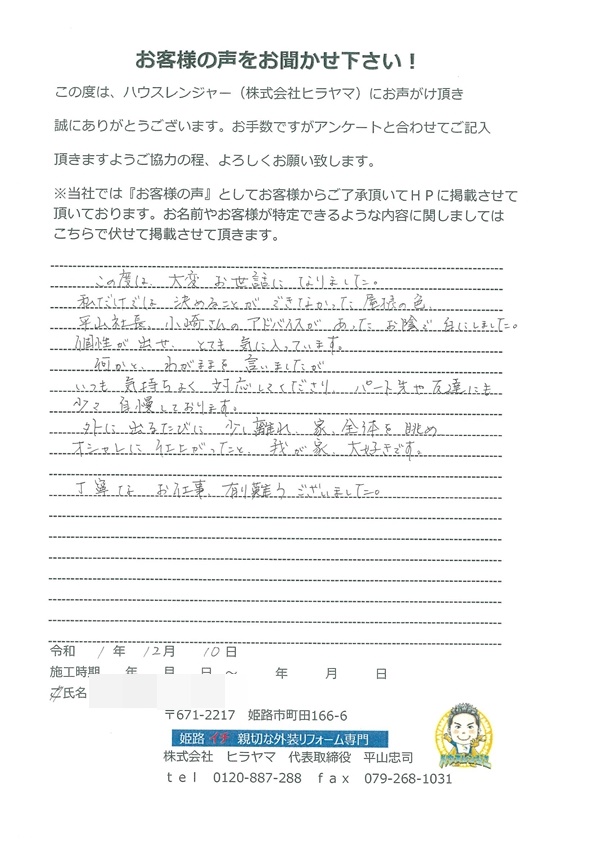 お客様の声をお聞かせ下さい！
この度は、ハウスレンジャー（株式会社ヒラヤマ）にお声がけ頂き
誠にありがとうございます。お手数ですがアンケートと合わせてご記入
頂きますようご協力の程、よろしくお願い致します。
※当社では『お客様の声』としてお客様からご了承頂いてＨＰに掲載させて
頂いております。お名前やお客様が特定できるような内容に関しましては
こちらで伏せて掲載させて頂きます。
この度は、大変 お世話に なりました。
私だけでは 決めることが できなかった 屋根の色、
平山社長、小崎さんの アドバイスが あった お陰で 白にしました。
個性が 出せ、とても 気に入っています。
何かと、わがままを 言いましたが
いつも 気持ちよく 対応してくださり、パート先や友達にも
少々 自慢しております。
外に 出るたびに 少し離れ、家、全体を 眺め
オシャレに 仕上がったと、我が家、大好きです。
丁寧な お仕事、有り難う ございました。
令和 1 年 12 月 10 日
施工時期 年 月 日 ～ 年 月 日
氏名
〒671-2217 姫路市町田166-6
姫路 イチ 親切な外装リフォーム専門
株式会社 ヒラヤマ 代表取締役 平山忠司
ｔｅｌ 0120-887-288 ｆａｘ 079-268-1031